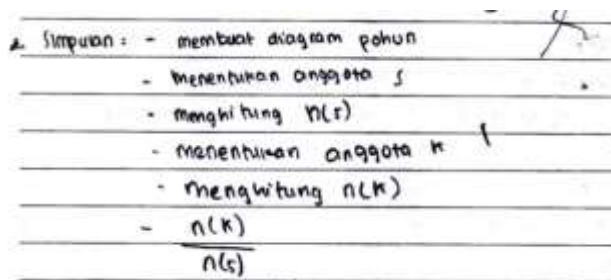 2. Simpulan : - membuat diagram pohun
- menentukan anggota s
- menghitung n(s)
- menentukan anggota k
- menghitung n(k)
- n(k)
n(s)